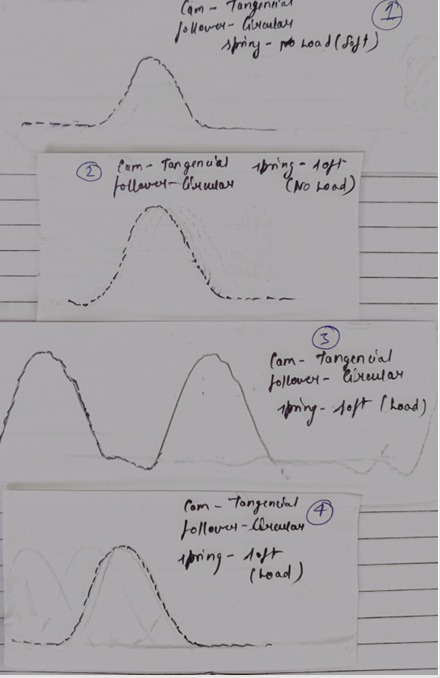 Cam - Tangencial
follower - Circular
spring - No Load (Soft)
1
2
Cam - Tangencial
follower - Circular
spring - soft
(No Load)
3
Cam - Tangencial
follower - Circular
spring - soft (Load)
4
Cam - Tangencial
follower - Circular
spring - soft
(Load)